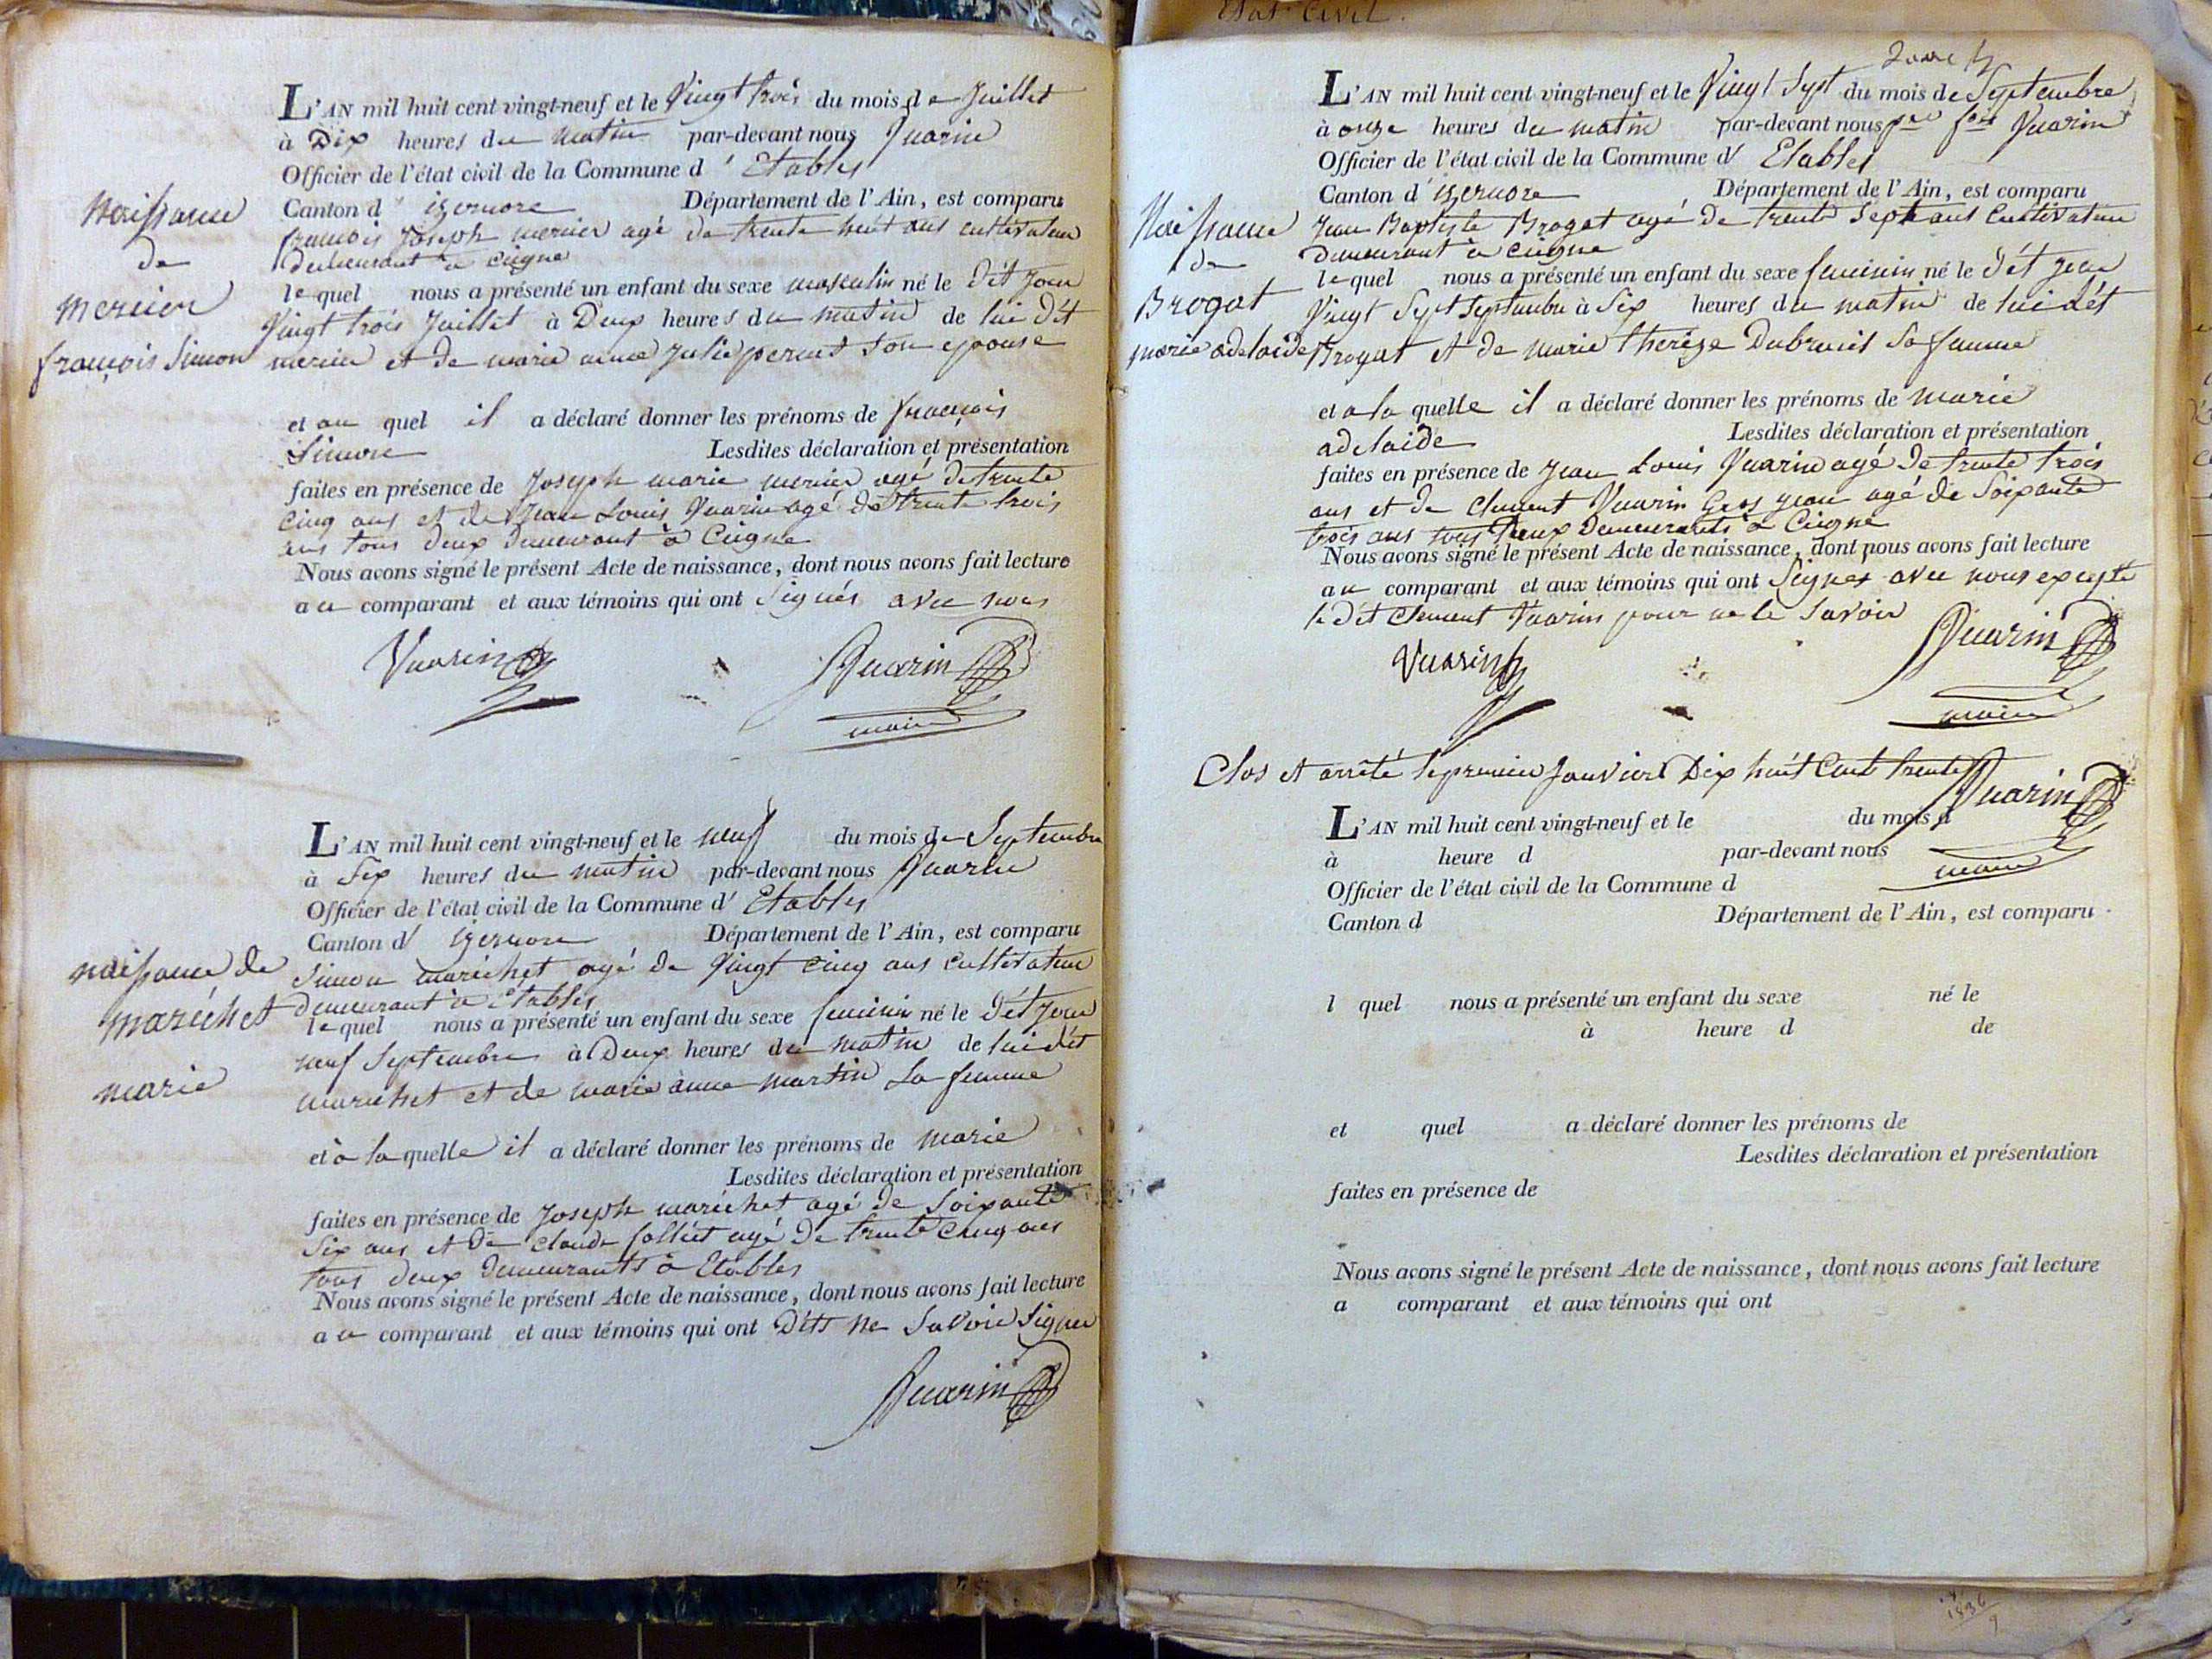 Etat Civil.
L'AN mil huit cent vingt-neuf et le Vingt trois du mois de Juillet
à Dix heures du matin par-devant nous Vuarin
Officier de l'état civil de la Commune d' Etables
Canton d' izernore Département de l'Ain, est comparu
françois Joseph mercier agé de trente huit ans cultivateur
demeurant à Ceigne
le quel nous a présenté un enfant du sexe masculin né le dit jour
Vingt trois Juillet à Deux heures du matin de lui dit
mercier et de marie anne Julie pernet son epouse
et au quel il a déclaré donner les prénoms de françois
Simon Lesdites déclaration et présentation
faites en présence de Joseph marie mercier agé de trente
Cinq ans et de Jean Louis Vuarin agé de trente trois
ans tous deux demeurant à Ceigne
Nous avons signé le présent Acte de naissance, dont nous avons fait lecture
au comparant et aux témoins qui ont Signés avec nous
Vuarin Vuarin
maire
Naissance
de
mercier
françois Simon
L'AN mil huit cent vingt-neuf et le neuf du mois de Septembre
à Six heures du matin par-devant nous Vuarin
Officier de l'état civil de la Commune d' Etables
Canton d' izernore Département de l'Ain, est comparu
Simon maréchet agé de Vingt Cinq ans Cultivateur
demeurant à Etables
le quel nous a présenté un enfant du sexe feminin né le dit jour
neuf Septembre à Deux heures du matin de lui dit
marechet et de marie anne martin Sa femme
et à la quelle il a déclaré donner les prénoms de marie
Lesdites déclaration et présentation
faites en présence de Joseph maréchet agé de Soixante
Six ans et de Claude folliet agé de trente Cinq ans
tous deux demeurants à Etables
Nous avons signé le présent Acte de naissance, dont nous avons fait lecture
au comparant et aux témoins qui ont Dits ne Savoir Signer
Vuarin
naissance de
maréchet
marie
L'AN mil huit cent vingt-neuf et le Vingt Sept du mois de Septembre
à onze heures du matin par-devant nous Vuarin
Officier de l'état civil de la Commune d' Etables
Canton d' izernore Département de l'Ain, est comparu
Jean Baptiste Brogat agé de trente Sept ans Cultivateur
demeurant à Ceigne
le quel nous a présenté un enfant du sexe feminin né le dit jour
Vingt Sept Septembre à Six heures du matin de lui dit
Brogat et de marie thereze Dubreuil Sa femme
et a la quelle il a déclaré donner les prénoms de marie
adelaide Lesdites déclaration et présentation
faites en présence de Jean Louis Vuarin agé de trente trois
ans et de Clement Vuarin Gros Jean agé de Soixante
trois ans tous deux demeurants à Ceigne
Nous avons signé le présent Acte de naissance, dont nous avons fait lecture
au comparant et aux témoins qui ont Signes avec nous excepte
le dit Clement Vuarin pour ne le Savoir
Vuarin Vuarin
maire
Naissance
de
Brogat
marie adelaide
Clos et arrêté le premier Janvier Dix huit Cent trente Vuarin
maire
L'AN mil huit cent vingt-neuf et le du mois d
à heure d par-devant nous
Officier de l'état civil de la Commune d
Canton d Département de l'Ain, est comparu
l quel nous a présenté un enfant du sexe né le
à heure d de
et quel a déclaré donner les prénoms de
Lesdites déclaration et présentation
faites en présence de
Nous avons signé le présent Acte de naissance, dont nous avons fait lecture
a comparant et aux témoins qui ont
1836
9